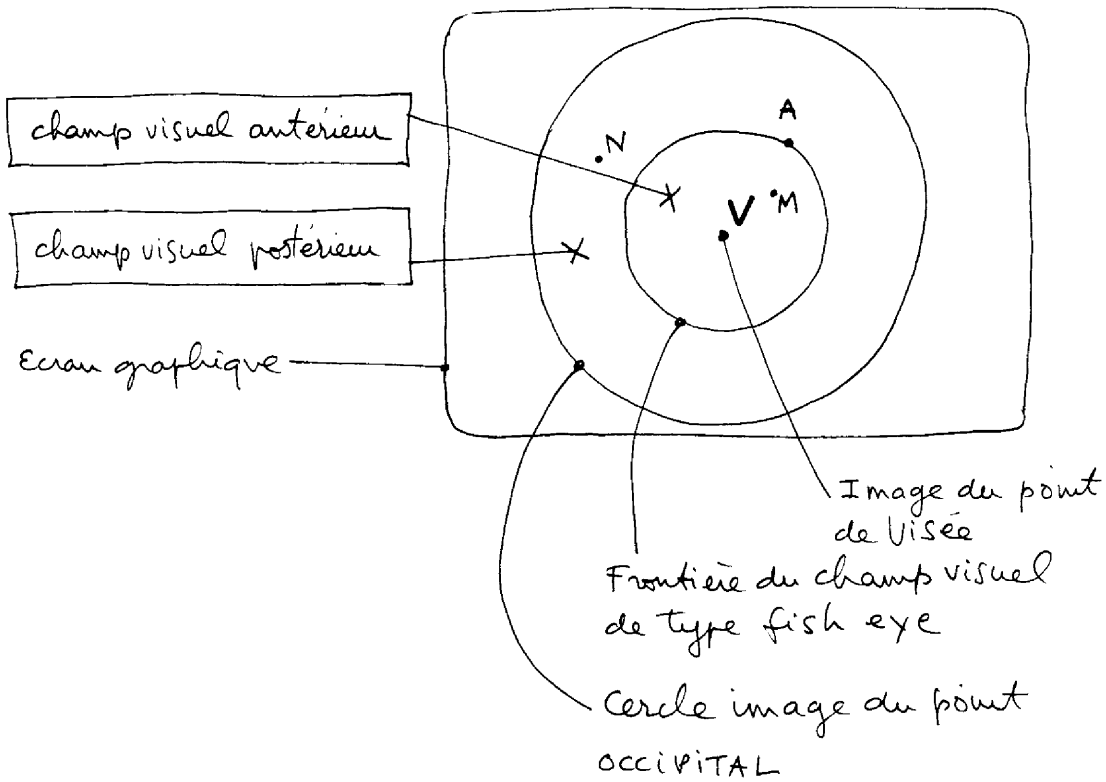 champ visuel antérieur
champ visuel postérieur
Ecran graphique
N
A
V
M
Image du point
de Visée
Frontière du champ visuel
de type fish eye
Cercle image du point
OCCIPITAL